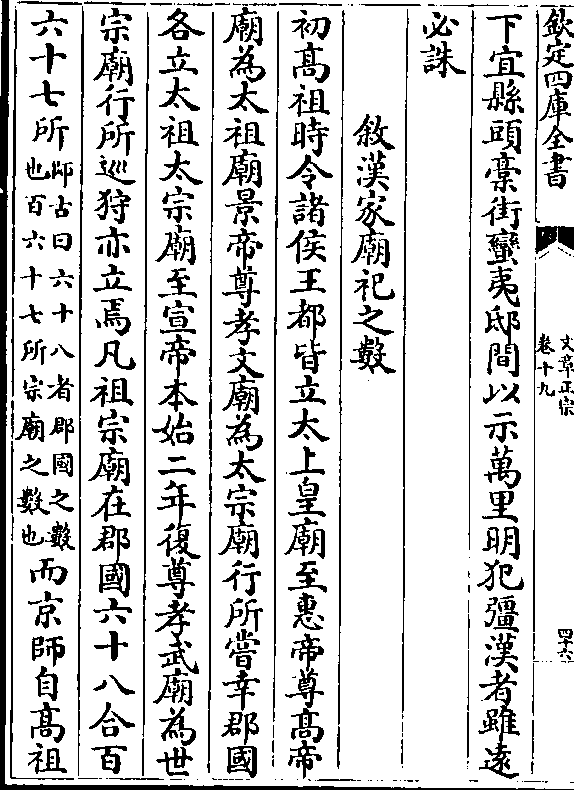 欽定四庫全書
文章正宗
卷十九
四十六
下宜縣頭稾街蠻夷邸間以示萬里明犯彊漢者雖逺
必誅
敘漢家廟祀之數
初髙祖時令諸侯王都皆立太上皇廟至惠帝尊髙帝
廟為太祖廟景帝尊孝文廟為太宗廟行所嘗幸郡國
各立太祖太宗廟至宣帝本始二年復尊孝武廟為世
宗廟行所巡狩亦立焉凡祖宗廟在郡國六十八合百
六十七所師古曰六十八者郡國之數也百六十七所宗廟之數也而京師自髙祖